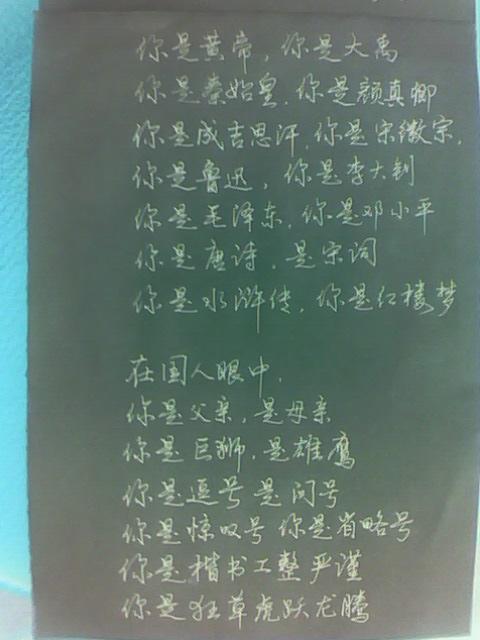 你是黄帝，你是大禹
你是秦始皇，你是颜真卿
你是成吉思汗，你是宋徽宗，
你是鲁迅，你是李大钊
你是毛泽东，你是邓小平
你是唐诗，是宋词
你是水浒传，你是红楼梦
在国人眼中，
你是父亲，是母亲
你是巨狮，是雄鹰
你是逗号 是问号
你是惊叹号 你是省略号
你是楷书工整严谨
你是狂草虎跃龙腾